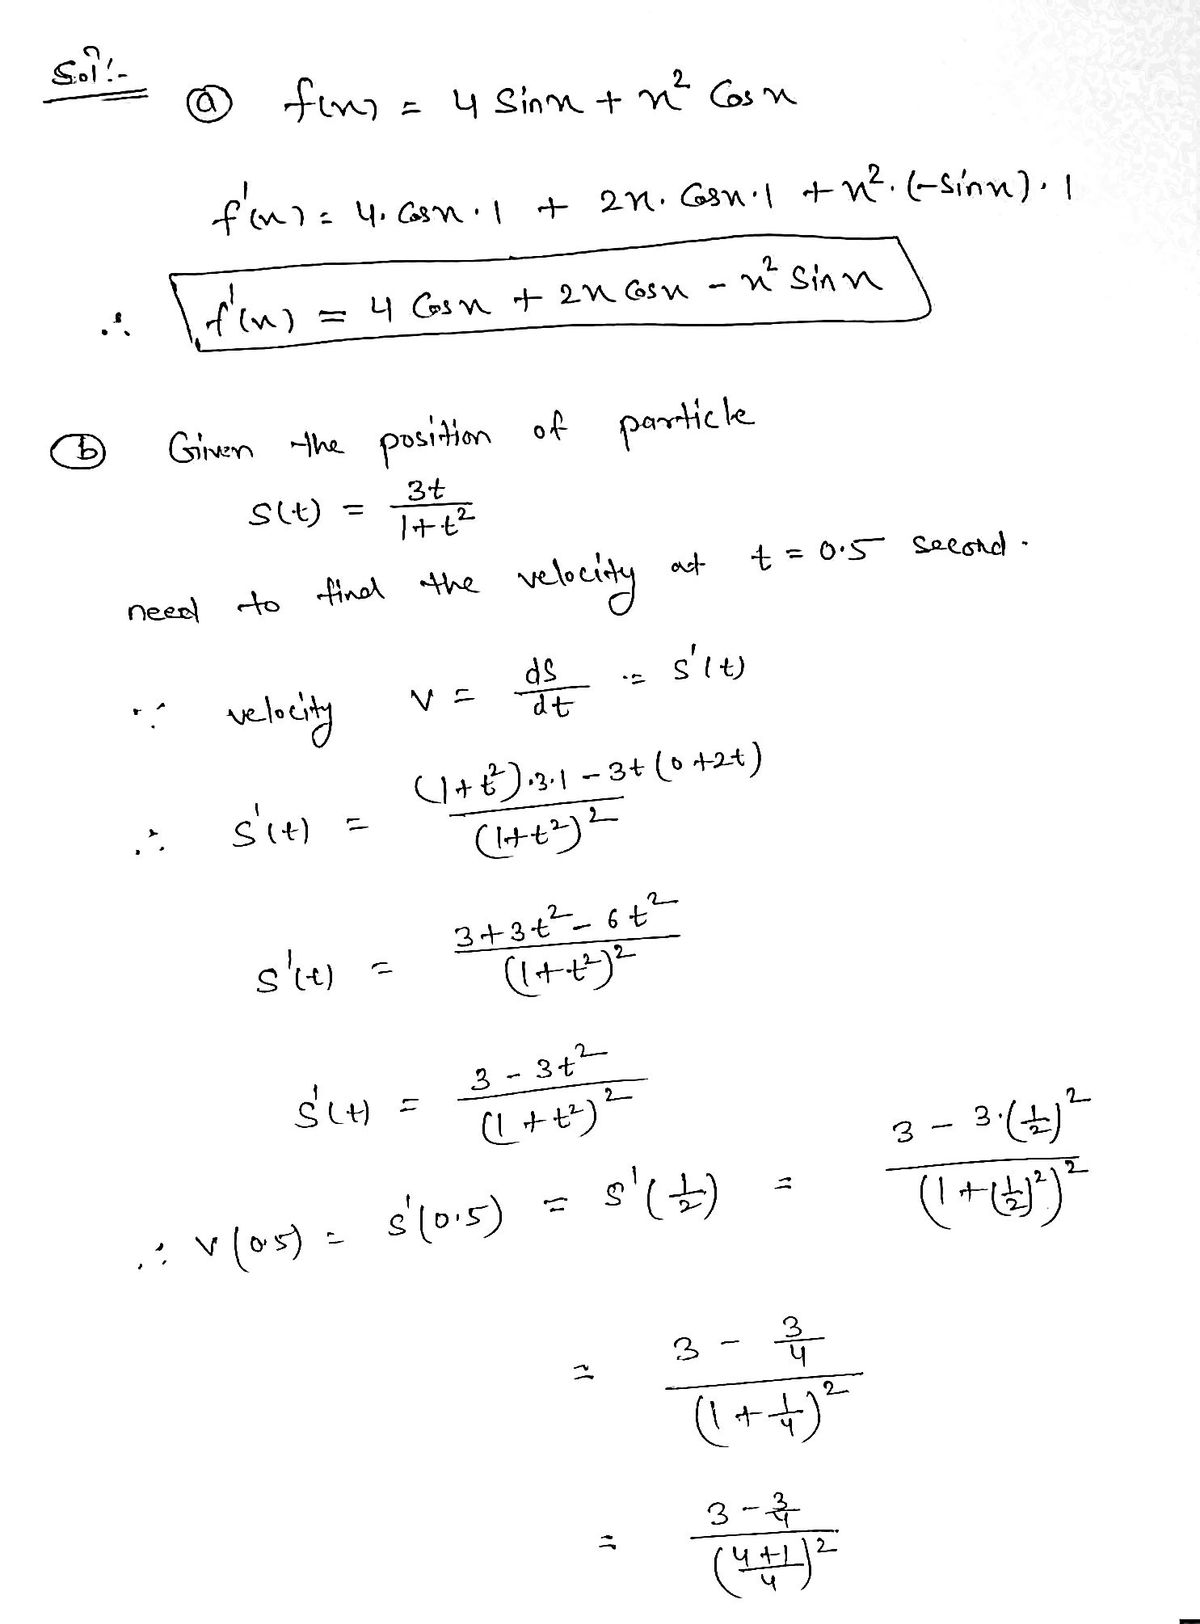 Sol!:-
(a) f(x) = 4 Sinx + x² Cos x
f'(x) = 4. Cosx . 1 + 2x. Cosx.1 + x². (-Sinx). 1
∴ f'(x) = 4 Cosx + 2x Cosx - x² Sinx
(b) Given the position of particle
S(t) = 3t / 1+t²
need to find the velocity at t = 0.5 second.
∵ velocity v = ds/dt = s'(t)
∴ S'(t) = (1+t²).3.1 - 3t(0+2t) / (1+t²)²
s'(t) = 3+3t² - 6t² / (1+t²)²
s'(t) = 3 - 3t² / (1+t²)²
∴ v(0.5) = s'(0.5) = s'(1/2) = 3 - 3.(1/2)² / (1+(1/2)²)²
= 3 - 3/4 / (1+1/4)²
= 3 - 3/4 / (4+1/4)²